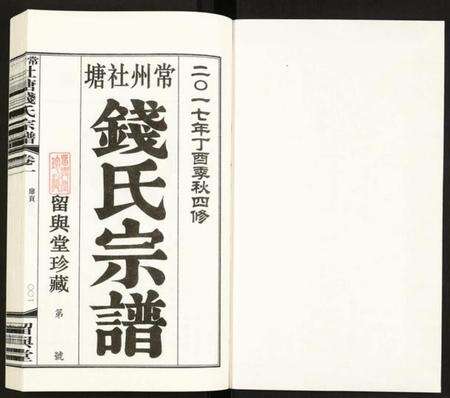 二〇一七年丁酉季秋四修
常州社塘
錢氏宗譜
留與堂珍藏
第 號
常州社塘錢氏宗譜 卷一 扉頁 〇〇一 留與堂